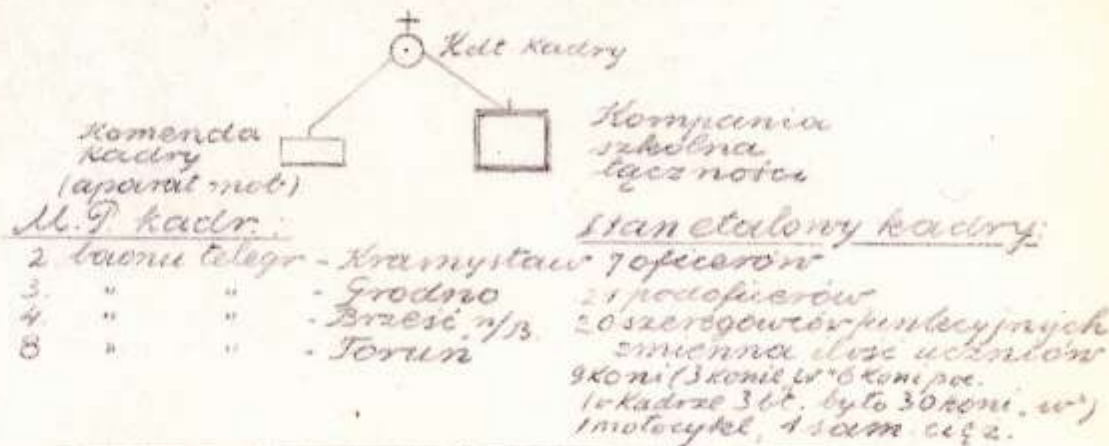 Kdt Kadry
Komenda
Kadry
(aparat mob)
Kompania
szkolna
łączności
M.P. kadr.:
2 baonu telegr - Kramystaw
3. " " - Grodno
4. " " - Brześć n/B.
8 " " - Toruń
Stan etatowy kadry:
7 oficerów
21 podoficerów
20 szeregowców funkcyjnych
zmienna ilość uczniów
9 koni (3 konie "w" 6 koni poc.
(w Kadrze 3 bt. było 30 koni "w")
1 motocykl, 1 sam. cięż.